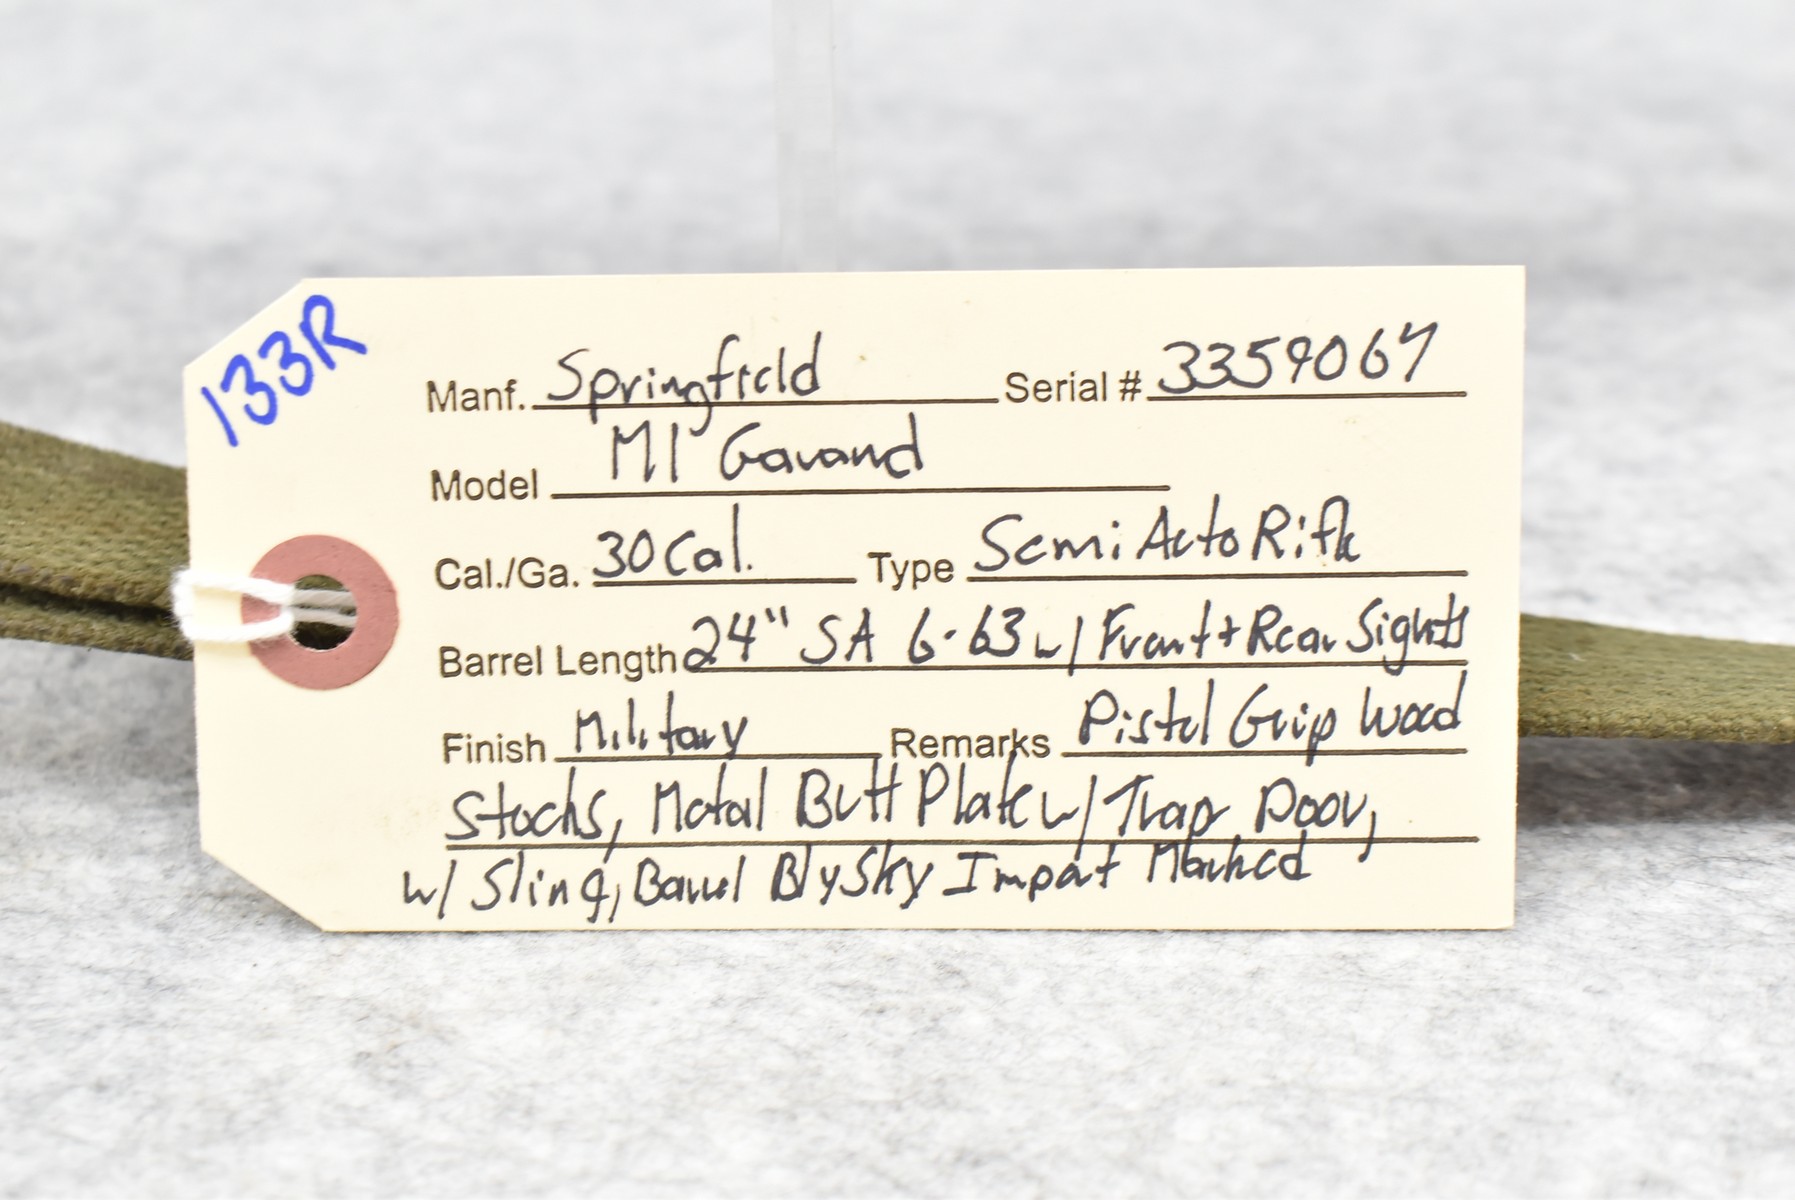 133R
Manf. Springfield Serial # 3359067
Model M1 Garand
Cal./Ga. 30 Cal. Type Semi Auto Rifle
Barrel Length 24" SA 6-63 w/ Front + Rear Sights
Finish Military Remarks Pistol Grip Wood
Stocks, Metal Butt Plate w/ Trap Door,
w/ Sling, Barrel BlySky Import Marked